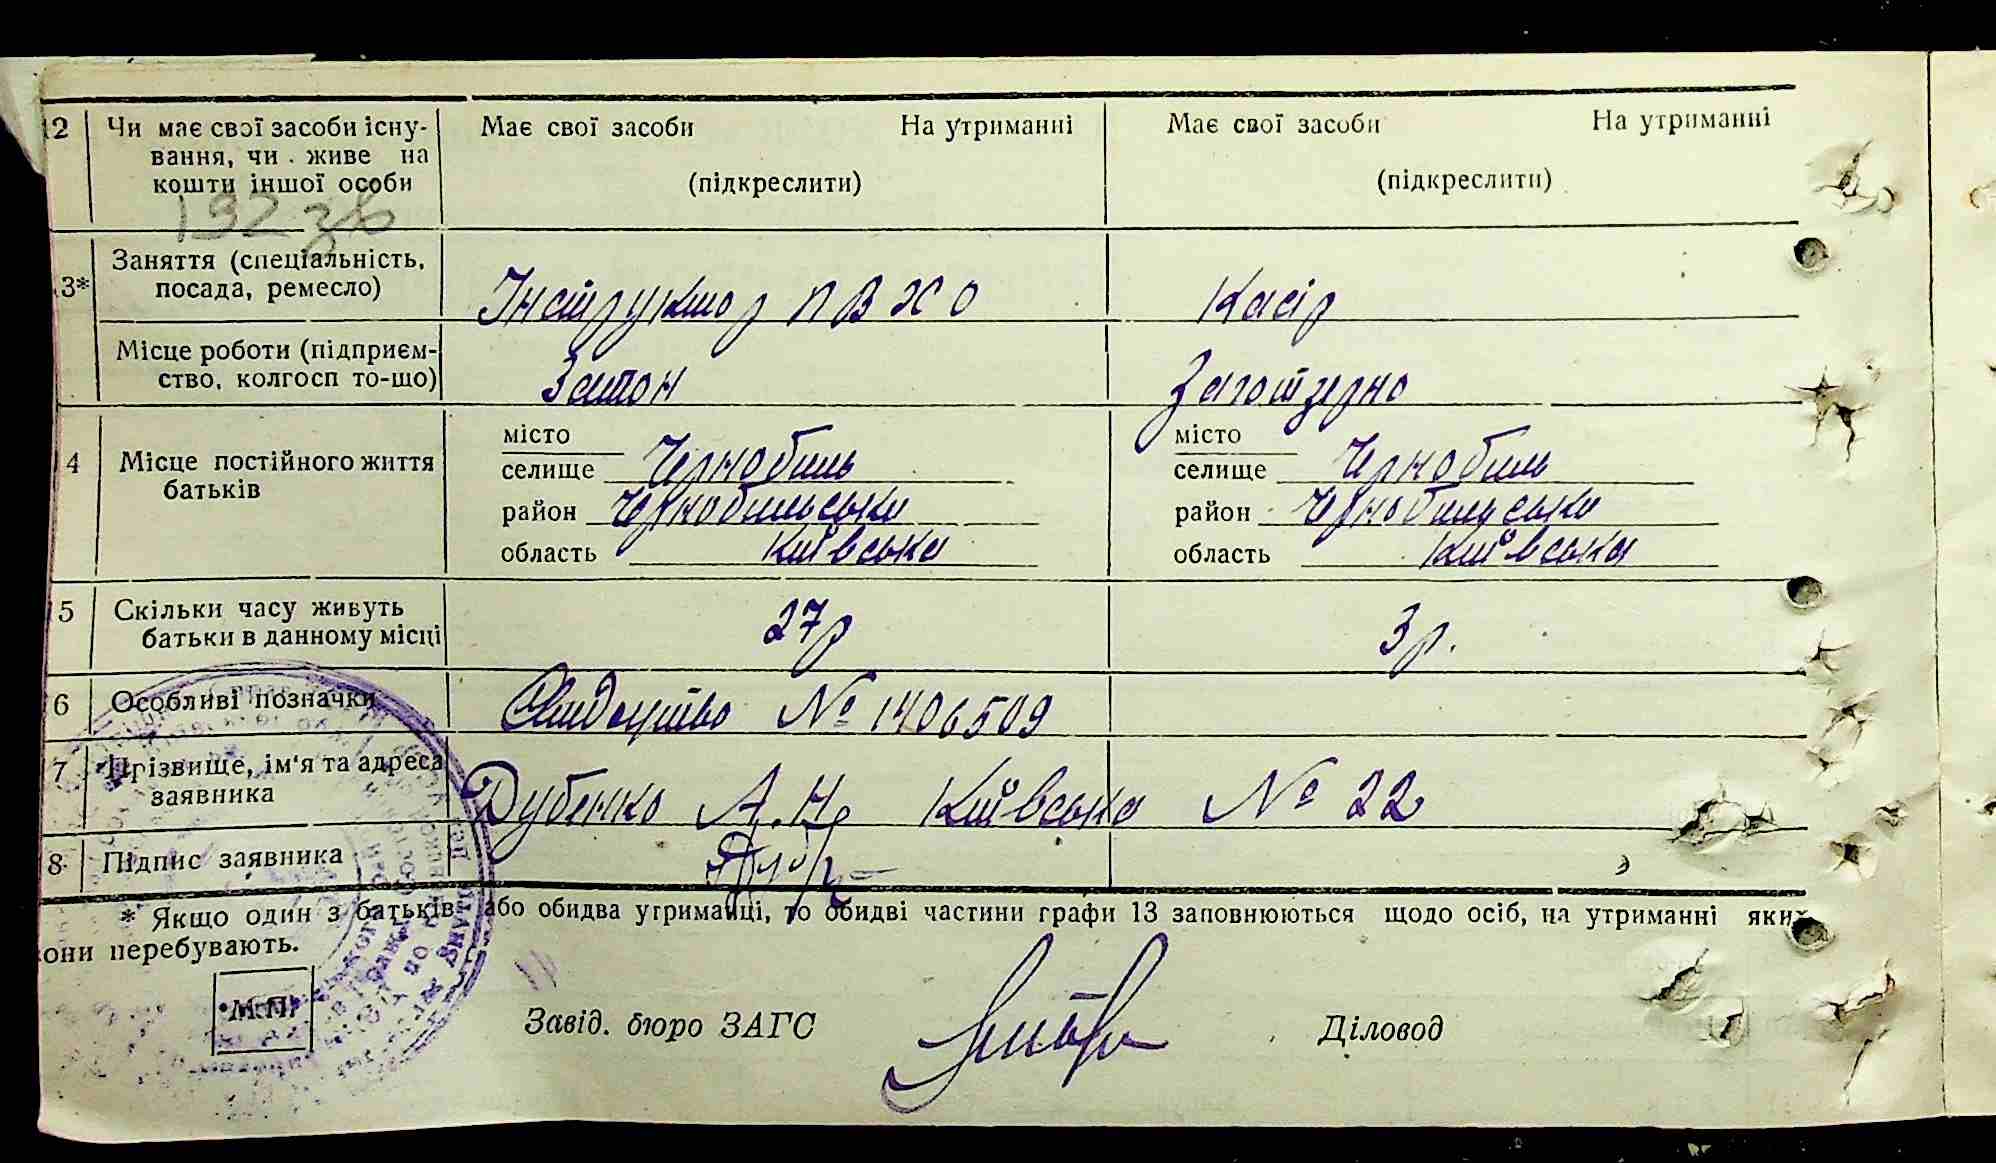 12 Чи має свої засоби існу- Має свої засоби На утриманні Має свої засоби На утриманні
вання, чи живе на
кошти іншої особи (підкреслити) (підкреслити)
192 зв
13* Заняття (спеціальність,
посада, ремесло) Інструктор ПВХО Касір
Місце роботи (підприєм-
ство, колгосп то-що) Затон Заготзерно
місто місто
4 Місце постійного життя селище Чернобиль селище Чернобиль
батьків
район Чернобильська район Чернобильська
область Київська область Київська
5 Скільки часу живуть
батьки в данному місці 27 р 3 р.
6 Особливі позначки Свидоцтво № 1406509
7 Прізвище, ім'я та адреса
заявника Дубенко А. Н. Київська № 22
8 Підпис заявника
* Якщо один з батьків або обидва утриманці, то обидві частини графи 13 заповнюються щодо осіб, на утриманні яких
вони перебувають.
М.П.
Завід. бюро ЗАГС Діловод